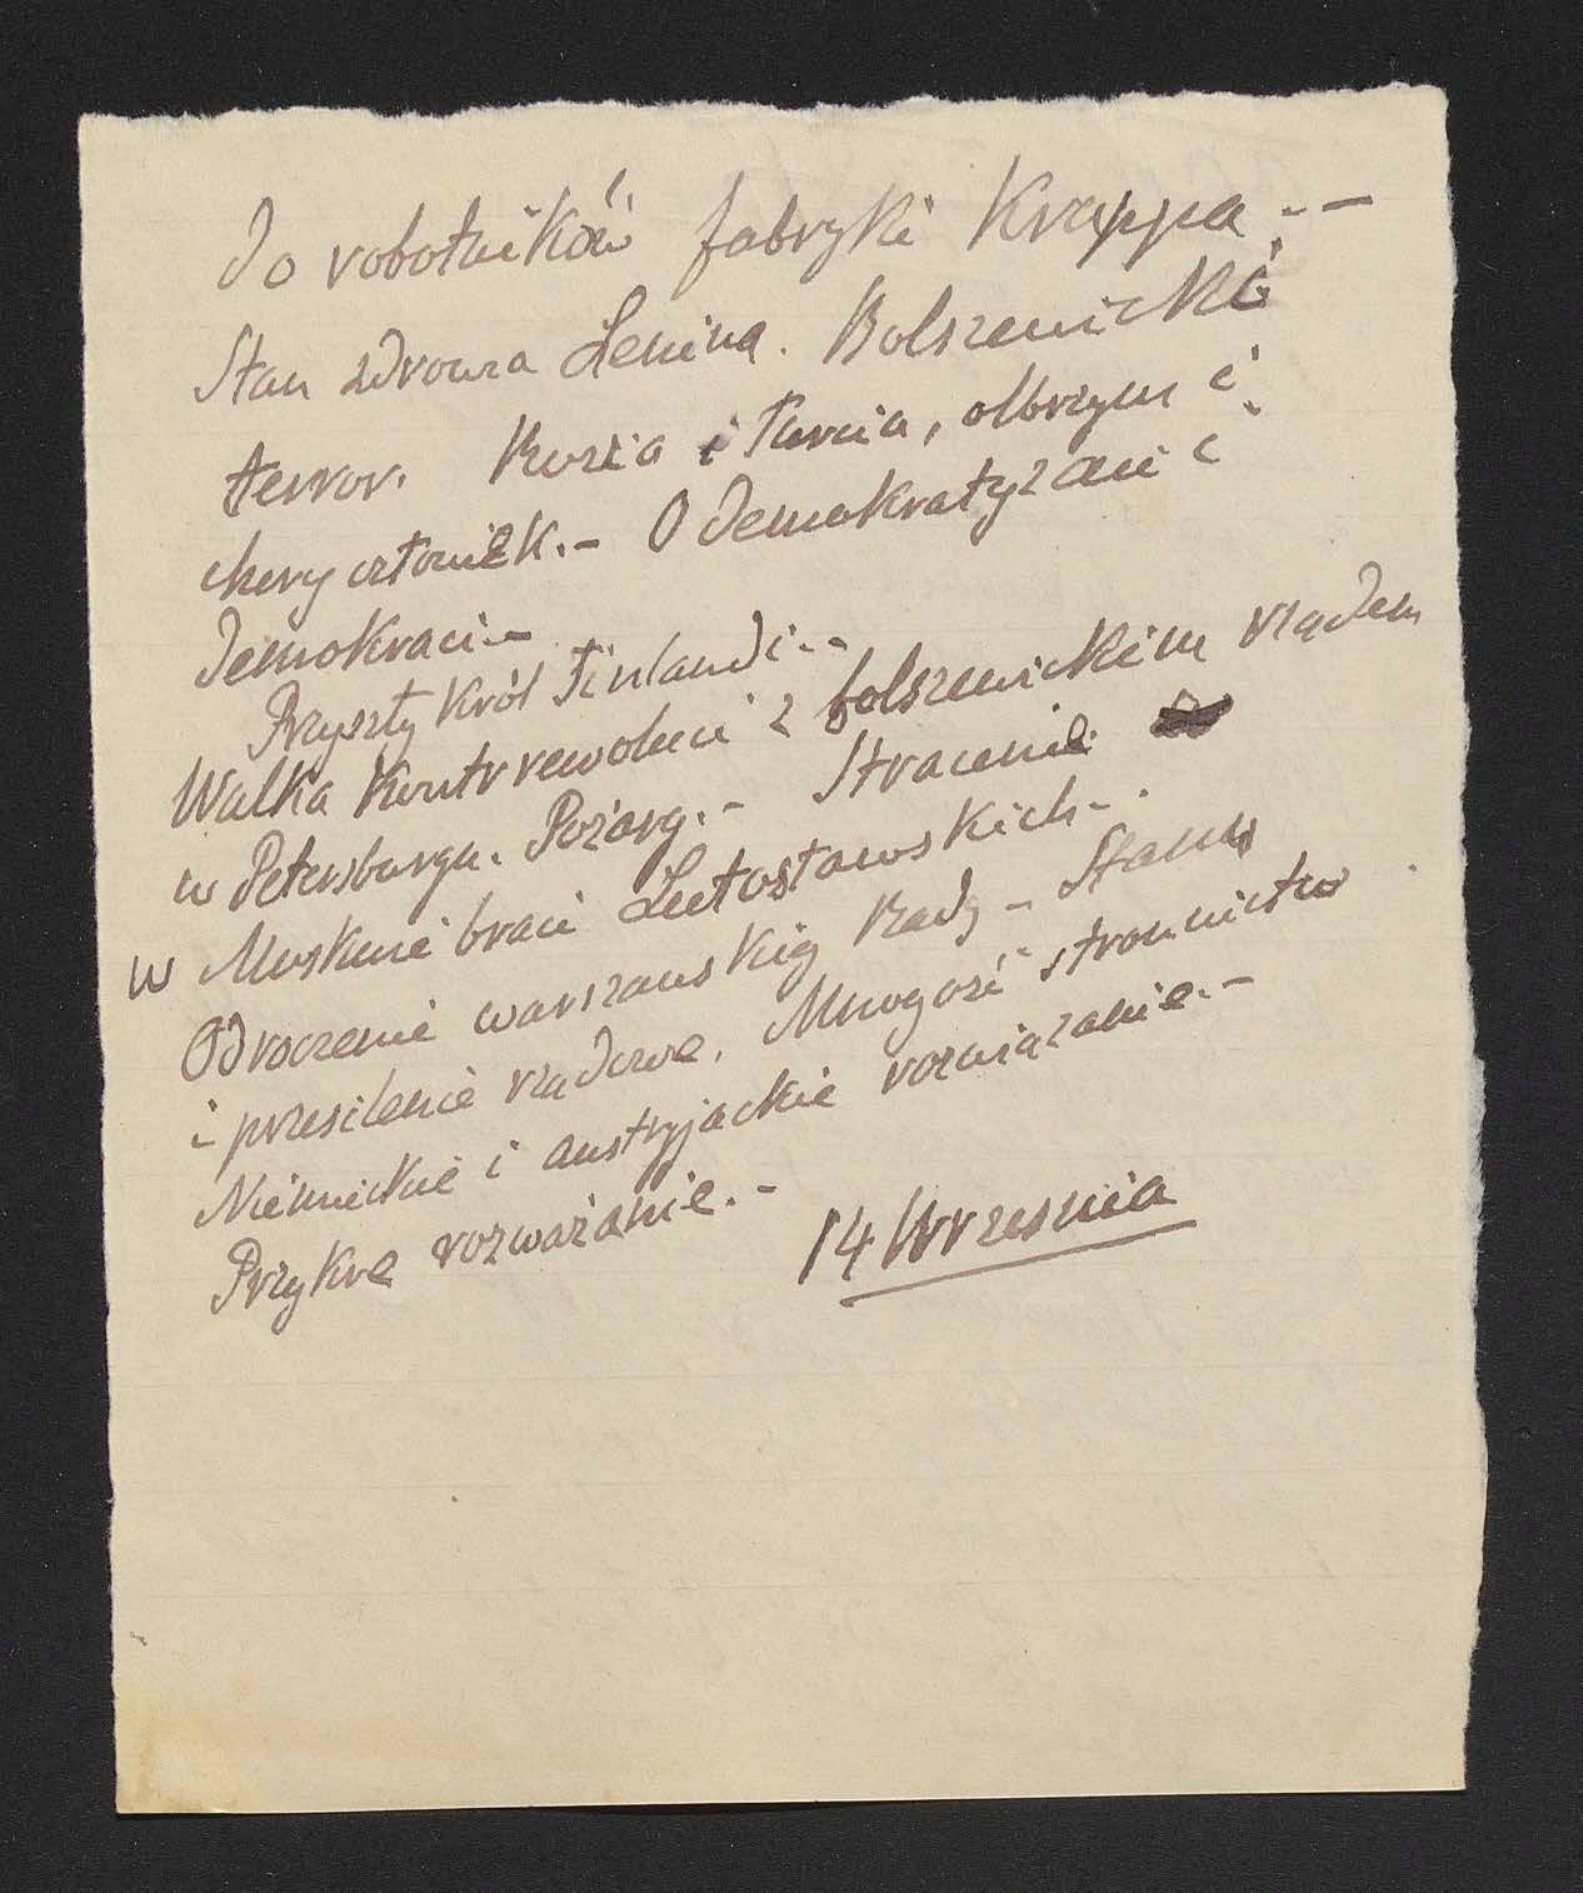 do robotników fabryki Kruppa.—
Stan zdrowia Lenina. Bolszewicki
terror. Rosia i Turcia, olbrzym i
chory człowiek.- O demokratyzacii
demokraci.-
Przyszły król Finlandi.-
Walka kontrrewoluci z bolszewickim rządem
w Petersburgu. Pożary.- Stracenie
w Moskwie braci Lutosławskich.-
Odroczenie warszawskiej Rady - Stanu
i przesilenie rządowe. Mnogość stronnictw.
Niemieckie i austryjackie rozwiązanie.-
Przykre rozważanie.-
14 Wrzesnia